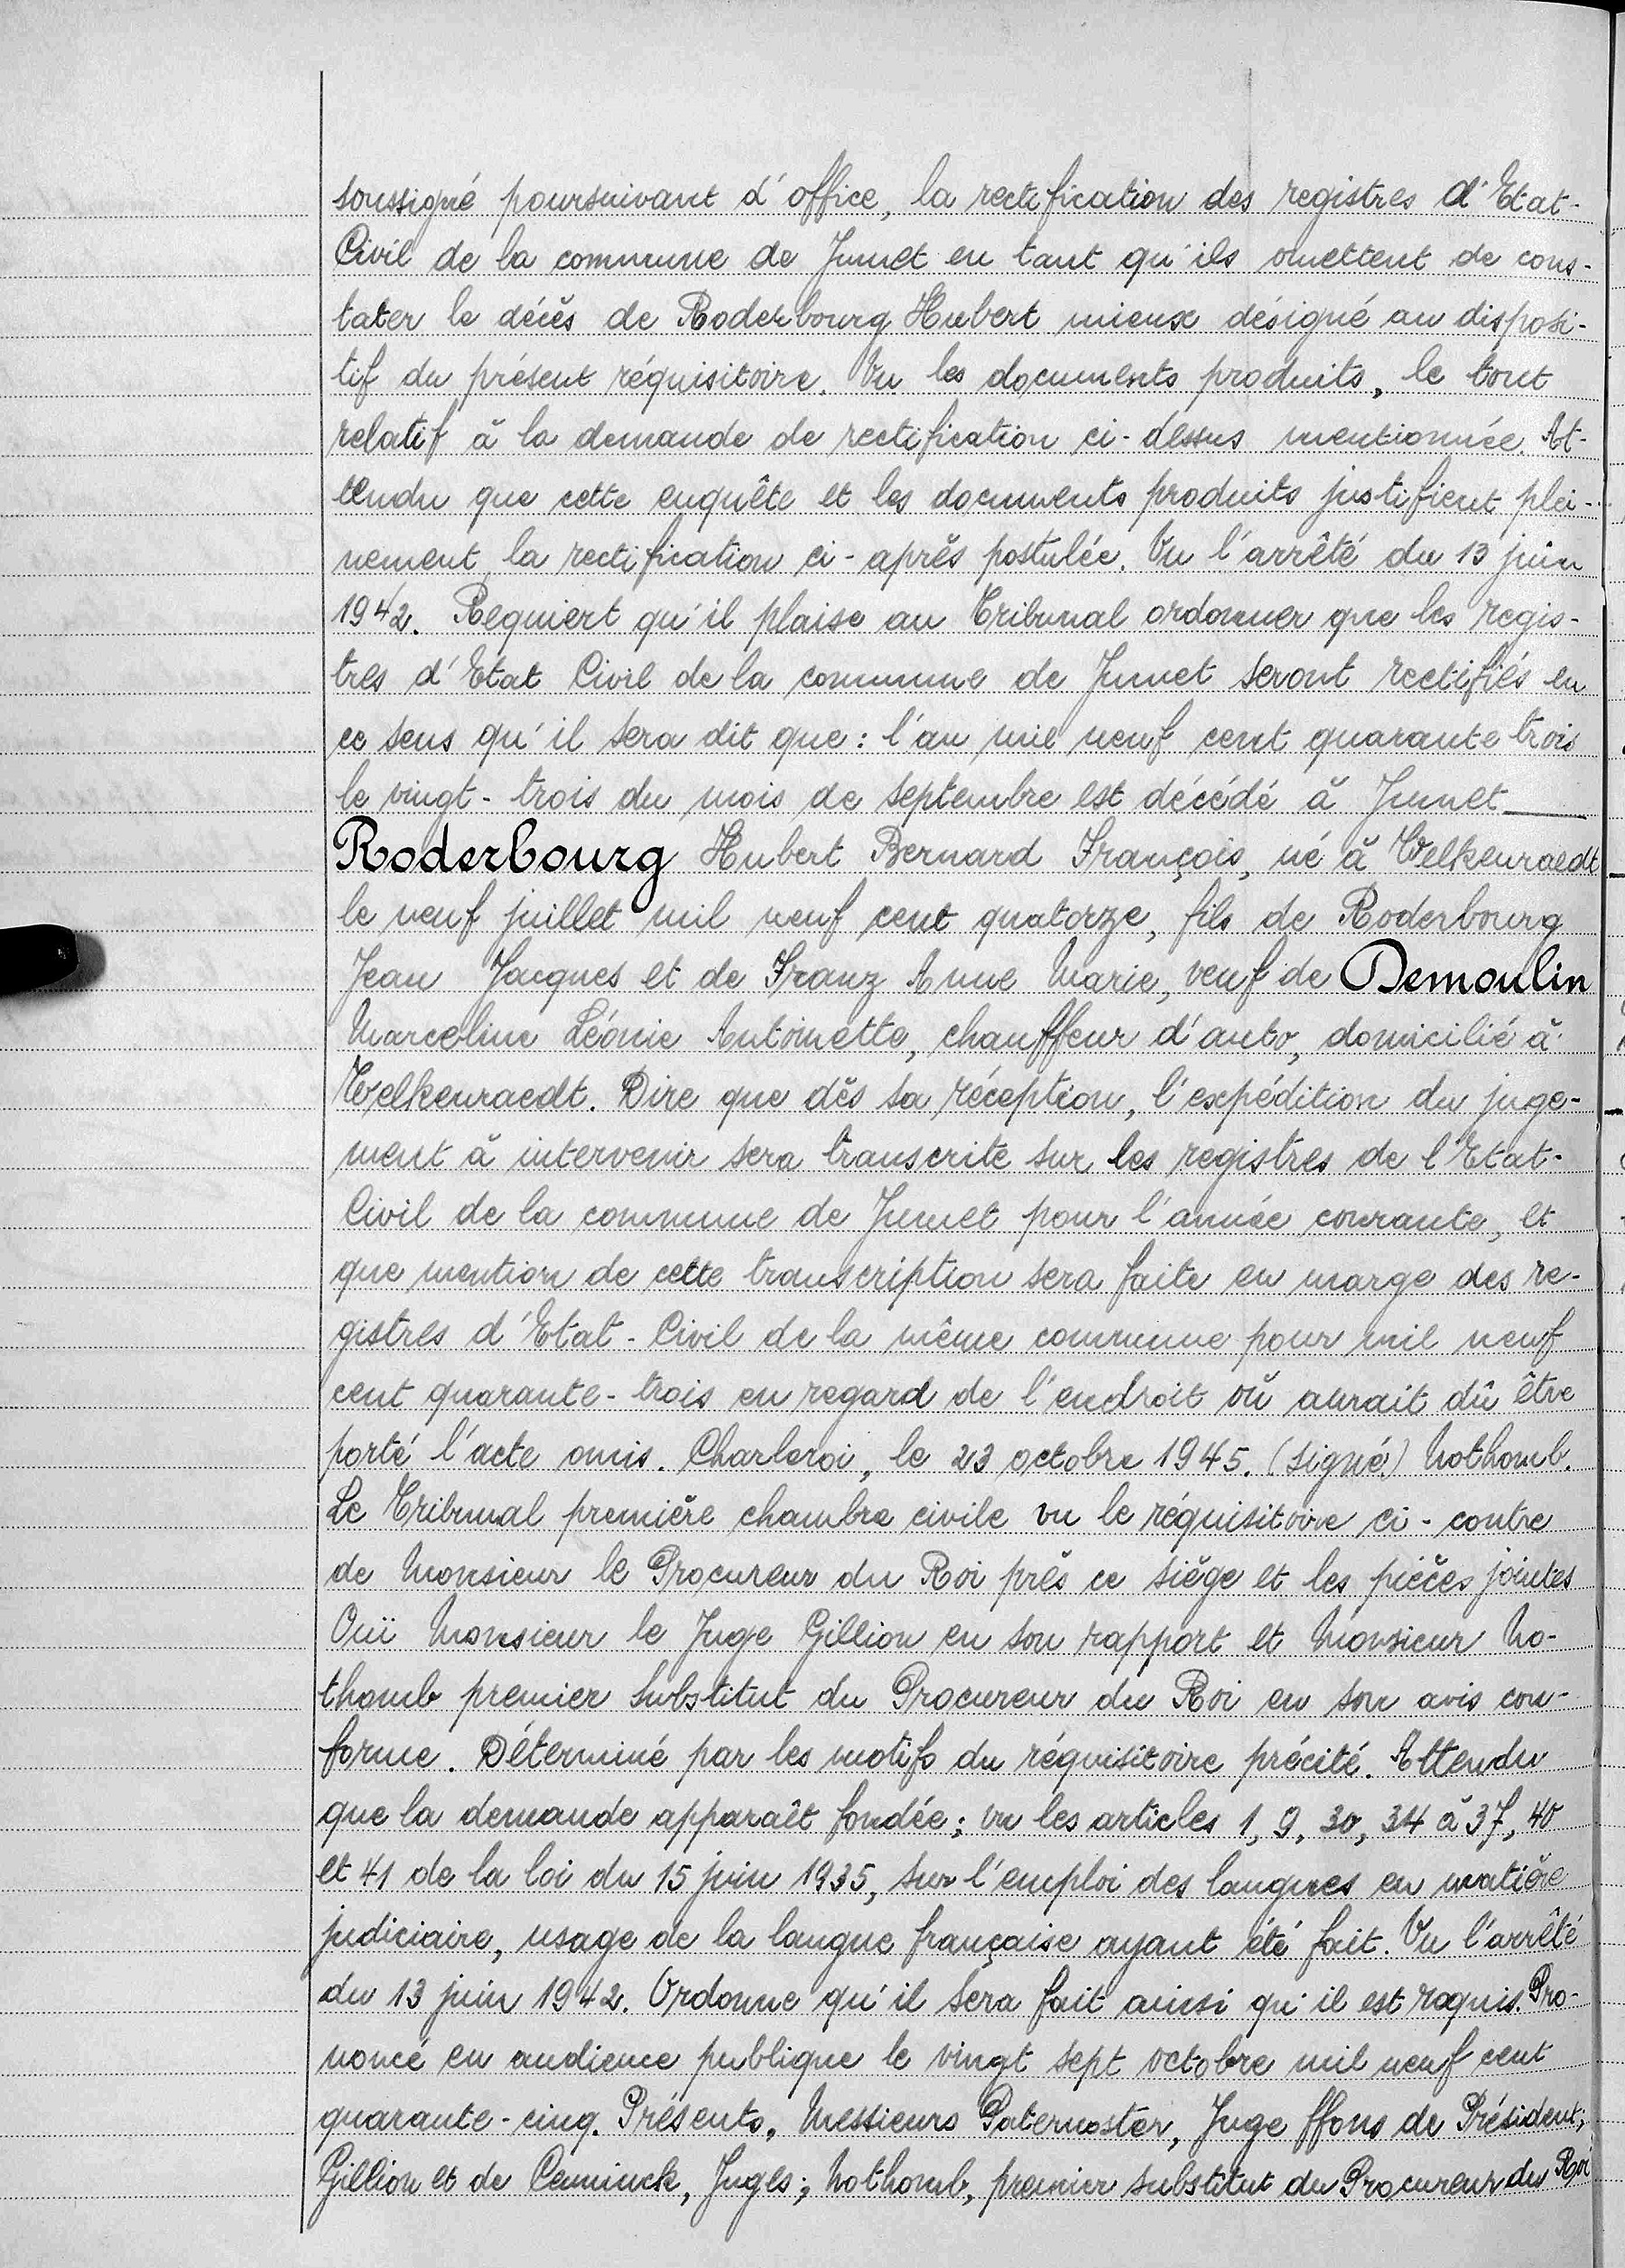 soussigné poursuivant d'office, la rectification des registres d'Etat-
Civil de la commune de Jumet en tant qu'ils omettent de cons-
tater le décès de Roderbourg Hubert mieux désigné au disposi-
tif du présent réquisitoire. Vu les documents produits, le tout
relatif à la demande de rectification ci-dessus mentionnée. At-
tendu que cette enquête et les documents produits justifient plei-
nement la rectification ci-après postulée. Vu l'arrêté du 13 juin
1942. Requiert qu'il plaise au Tribunal ordonner que les regis-
tres d'Etat Civil de la commune de Jumet seront rectifiés en
ce sens qu'il sera dit que : l'an mil neuf cent quarante trois
le vingt-trois du mois de septembre est décédé à Jumet
Roderbourg Hubert Bernard François, né à Welkenraedt
le neuf juillet mil neuf cent quatorze, fils de Roderbourg
Jean Jacques et de Franz Anne Marie, veuf de Demoulin
Marceline Léonie Antoinette, chauffeur d'auto, domicilié à
Welkenraedt. Dire que dès sa réception, l'expédition du juge-
ment à intervenir sera transcrite sur les registres de l'Etat-
Civil de la commune de Jumet pour l'année courante, et
que mention de cette transcription sera faite en marge des re-
gistres d'Etat-Civil de la même commune pour mil neuf
cent quarante-trois en regard de l'endroit où aurait dû être
porté l'acte omis. Charleroi, le 23 octobre 1945. (signé) Nothomb.
Le Tribunal première chambre civile vu le réquisitoire ci-contre
de Monsieur le Procureur du Roi près ce siège et les pièces jointes
Ouï Monsieur le Juge Gillion en son rapport et Monsieur No-
thomb premier substitut du Procureur du Roi en son avis con-
forme. Déterminé par les motifs du réquisitoire précité. Attendu
que la demande apparaît fondée ; vu les articles 1, 9, 30, 34 à 37, 40
et 41 de la loi du 15 juin 1935, sur l'emploi des langues en matière
judiciaire, usage de la langue française ayant été fait. Vu l'arrêté
du 13 juin 1942. Ordonne qu'il sera fait ainsi qu'il est requis. Pro-
noncé en audience publique le vingt sept octobre mil neuf cent
quarante-cinq. Présents, Messieurs Paternoster, Juge ffons de Président ;
Gillion et de Ceuninck, Juges ; Nothomb, premier substitut du Procureur du Roi